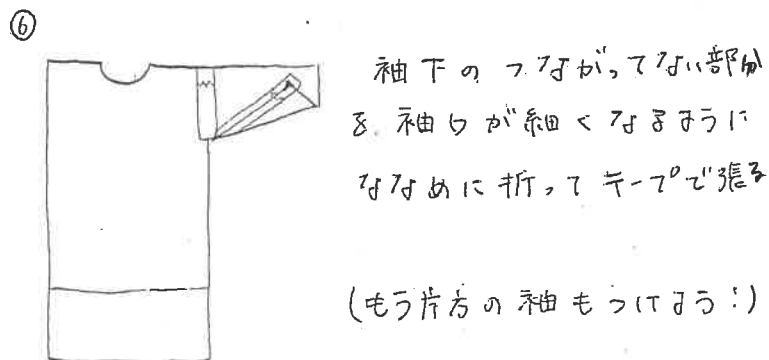 ⑥
袖下のつながってない部分
を袖口が細くなるように
ななめに折ってテープで張る
(もう片方の袖もつけよう!)